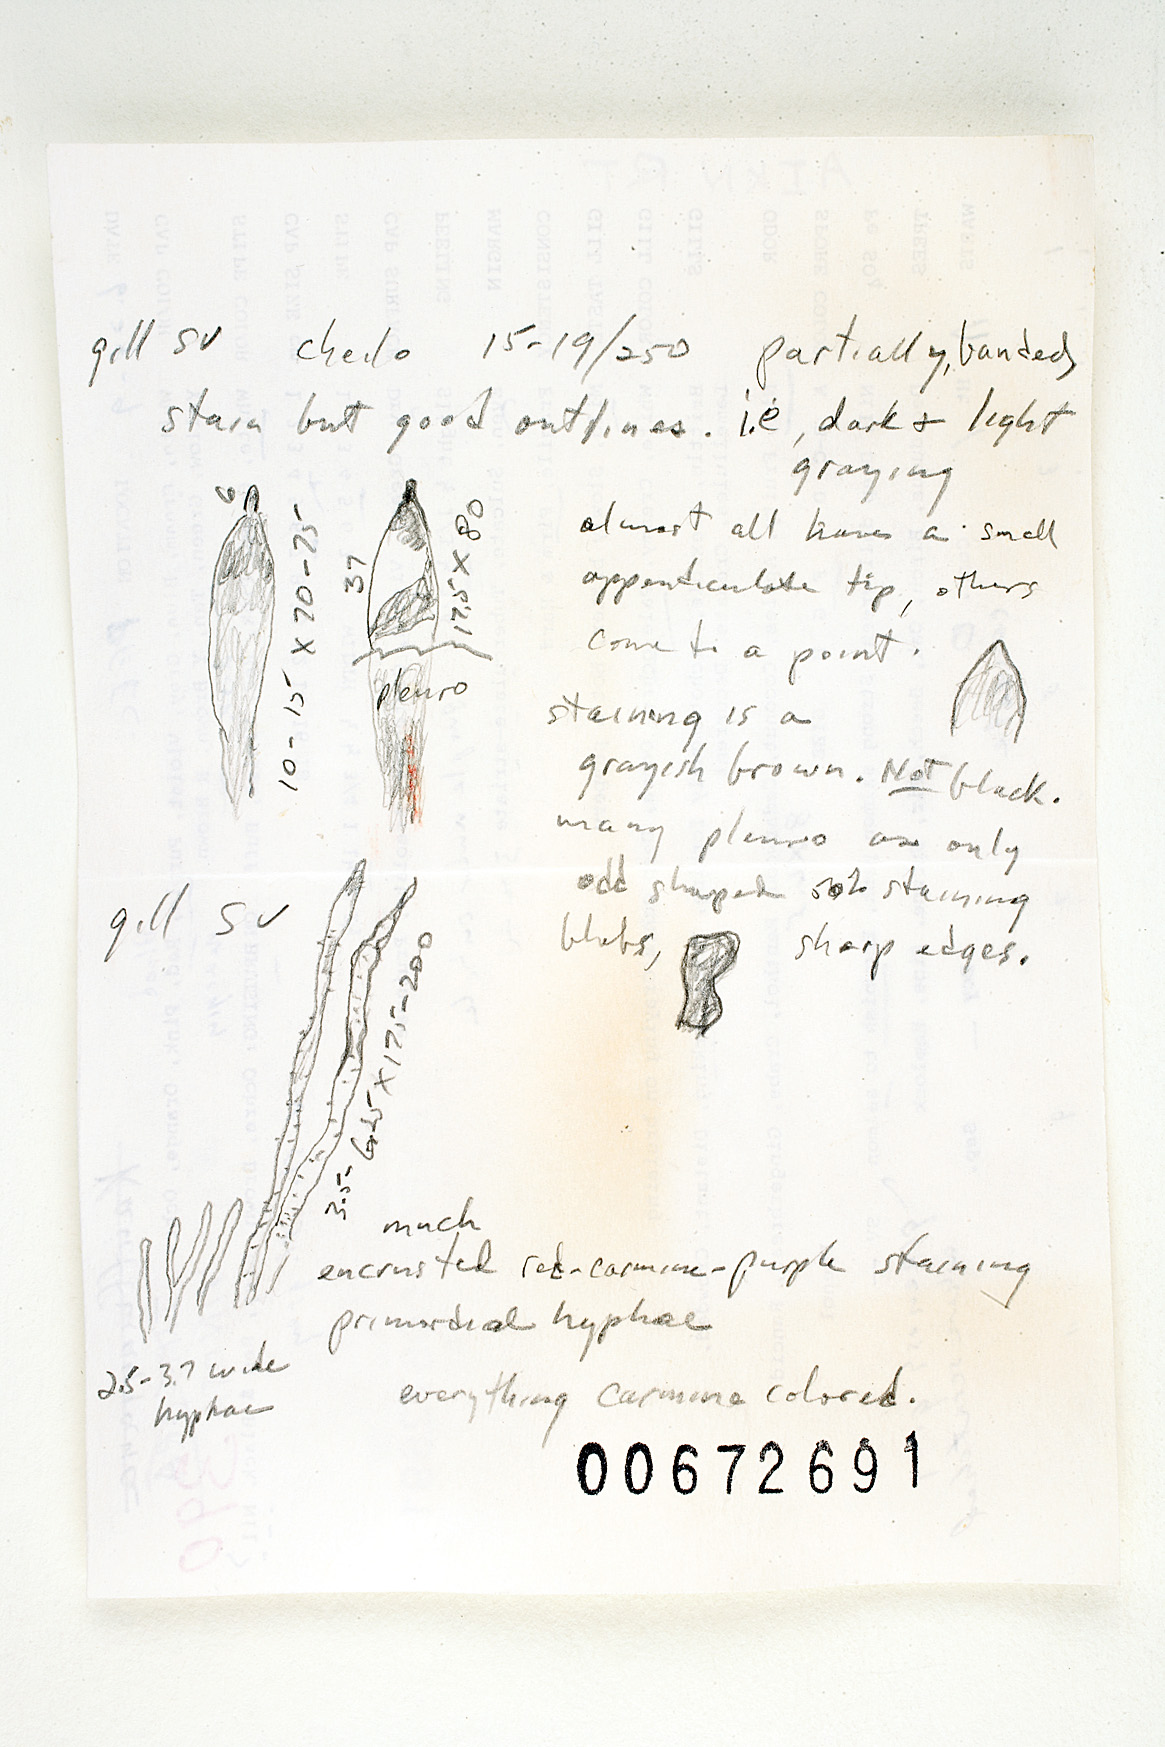 gill SV cheilo 15-19/250 partially, banded,
stain but good outlines. i.e, dark + light
graying
6
10-15 X 70-75
37
12.5 X 80
pleuro
almost all have a small
appenticulate tip, others
come to a point.
staining is a
grayish brown. Not black.
many pleuro are only
odd shaped staining
blobs, sharp edges.
gill SV
X 17.5-200
much
encrusted red-carmine-purple staining
primordial hyphae
2.5-3.7 wide
hyphae
everything carmine colored.
00672691